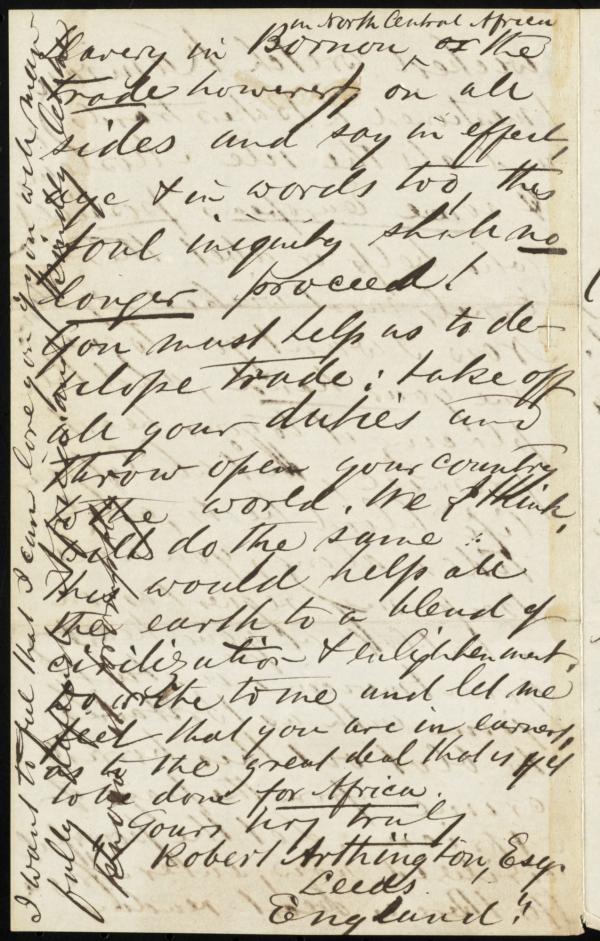 in North Central Africa
slavery in Bornou or the
trade however, on all
sides and say in effect,
aye & in words too, this
foul iniquity shall no
longer proceed!
You must help us to de-
velope trade: take off
all your duties and
throw open your country
to the world. We I think,
will do the same.
This would help all
the earth to a blend of
civilization & enlightenment.
Do write to me and let me
feel that you are in earnest,
as to the great deal that is yet
to be done for Africa.
Yours very truly
Robert Arthington, Esq
Leeds
England."
I want to feel that I can love you if you will man-
fully